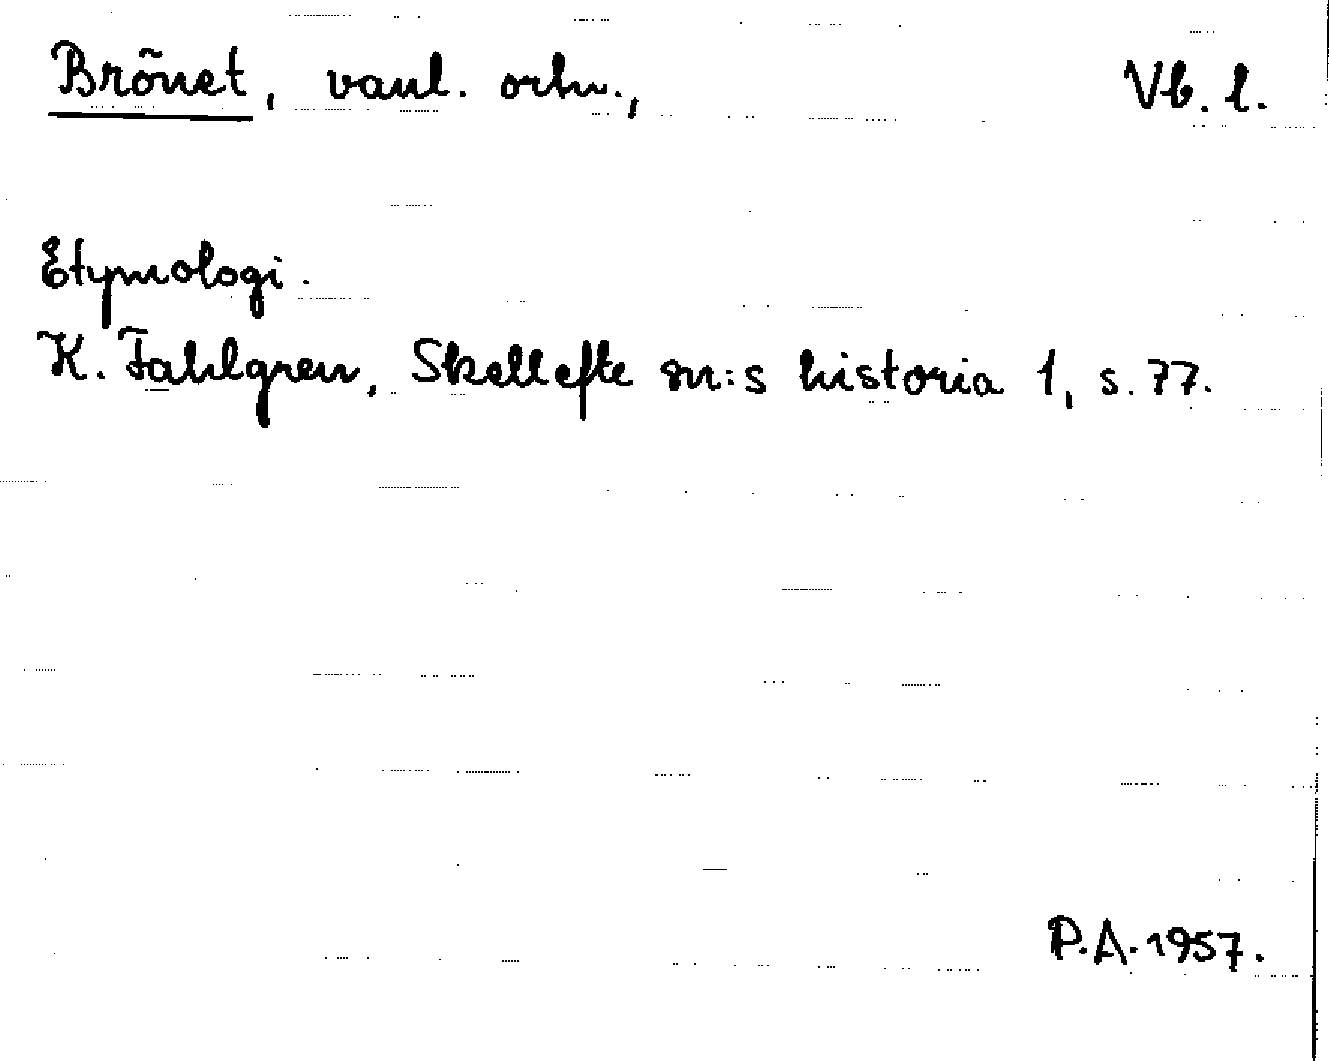 Brönet, vanl. ortn., Vb. l.
Etymologi.
K. Fahlgren, Skellefte sn:s historia 1, s. 77.
P.A. 1957.